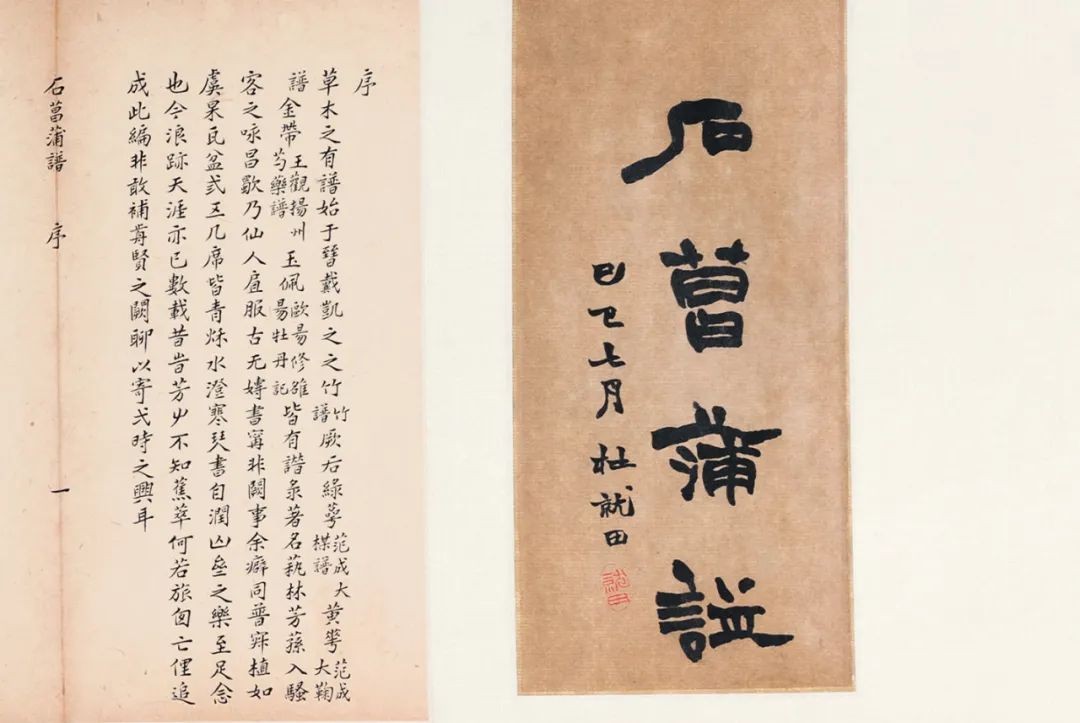 石菖蒲譜
己卯七月 杜就田
就田
序
草木之有譜始于晉戴凱之之竹竹譜厥后綠萼范成大楳譜黃蕚范成大鞠
譜金帶王觀揚州芍藥譜玉佩歐昜修雒昜牡丹記皆有譜彔著名蓺林芳蓀入騷
客之咏昌歜乃仙人服古无專書寗非闕事余癖同普植如
虞杲瓦盆弍五几席皆青秌水澄寒琹書自潤山壑之樂至足念
也今浪跡天涯亦已數載昔旹芳屮不知蕉萃何若旅囪亡俚追
成此編非敢補歬賢之闕聊以寄弌時之興耳
石菖蒲譜 序 一